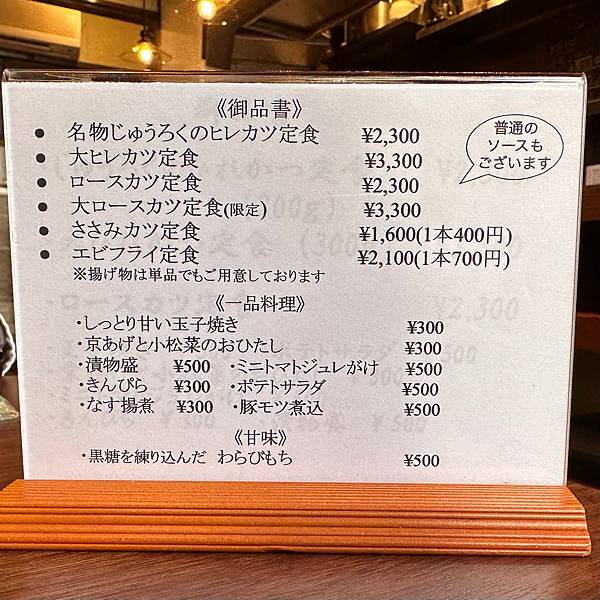 《御品書》
● 名物じゅうろくのヒレカツ定食 ¥2,300
● 大ヒレカツ定食 ¥3,300
● ロースカツ定食 ¥2,300
● 大ロースカツ定食(限定) ¥3,300
● ささみカツ定食 ¥1,600(1本400円)
● エビフライ定食 ¥2,100(1本700円)
※揚げ物は単品でもご用意しております
普通の
ソースも
ございます
《一品料理》
・しっとり甘い玉子焼き ¥300
・京あげと小松菜のおひたし ¥300
・漬物盛 ¥500 ・ミニトマトジュレがけ ¥500
・きんぴら ¥300 ・ポテトサラダ ¥500
・なす揚煮 ¥300 ・豚モツ煮込 ¥500
《甘味》
・黒糖を練り込んだ わらびもち ¥500